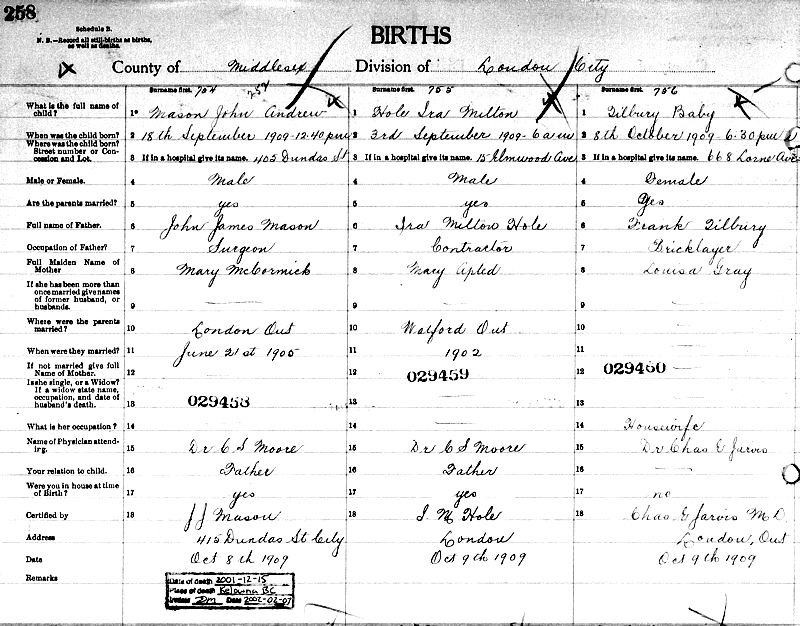 258
Schedule B.
N. B.—Record all still-births as births, as well as deaths.
BIRTHS
County of Middlesex Division of London City
Surname first. 754 Surname first. 755 Surname first. 756
257
What is the full name of child? 1 Mason John Andrew 1 Hole Ira Milton 1 Tilbury Baby
When was the child born? 2 18th September 1909-12:40 pm 2 3rd September 1909-6 am 2 8th October 1909 6-30 pm
Where was the child born? Street number or Concession and Lot. 3 If in a hospital give its name. 405 Dundas St 3 If in a hospital give its name. 15 Elmwood Ave 3 If in a hospital give its name. 668 Lorne Ave
Male or Female. 4 Male 4 Male 4 Female
Are the parents married? 5 yes 5 yes 5 Yes
Full name of Father. 6 John James Mason 6 Ira Milton Hole 6 Frank Tilbury
Occupation of Father? 7 Surgeon 7 Contractor 7 Bricklayer
Full Maiden Name of Mother 8 Mary McCormick 8 Macy Apted 8 Louisa Gray
If she has been more than once married give names of former husband, or husbands. 9 9 9
Where were the parents married? 10 London Ont 10 Walford Ont 10
When were they married? 11 June 21st 1905 11 1902 11
If not married give full Name of Mother. 12 12 029459 12 029460
Is she single, or a Widow? If a widow state name, occupation, and date of husband's death. 13 029458 13 13
What is her occupation? 14 14 14 Housewife
Name of Physician attending. 15 Dr C S Moore 15 Dr C S Moore 15 Dr Chas G Jarvis
Your relation to child. 16 Father 16 Father 16
Were you in house at time of Birth? 17 yes 17 yes 17 no
Certified by 18 JJ Mason 18 I. M. Hole 18 Chas G Jarvis M D
Address 415 Dundas St City London London, Ont
Date Oct 8th 1909 Oct 9th 1909 Oct 9th 1909
Remarks
Date of death 2001-12-15
Place of death Kelowna BC
Initials Dm Date 2002-02-07